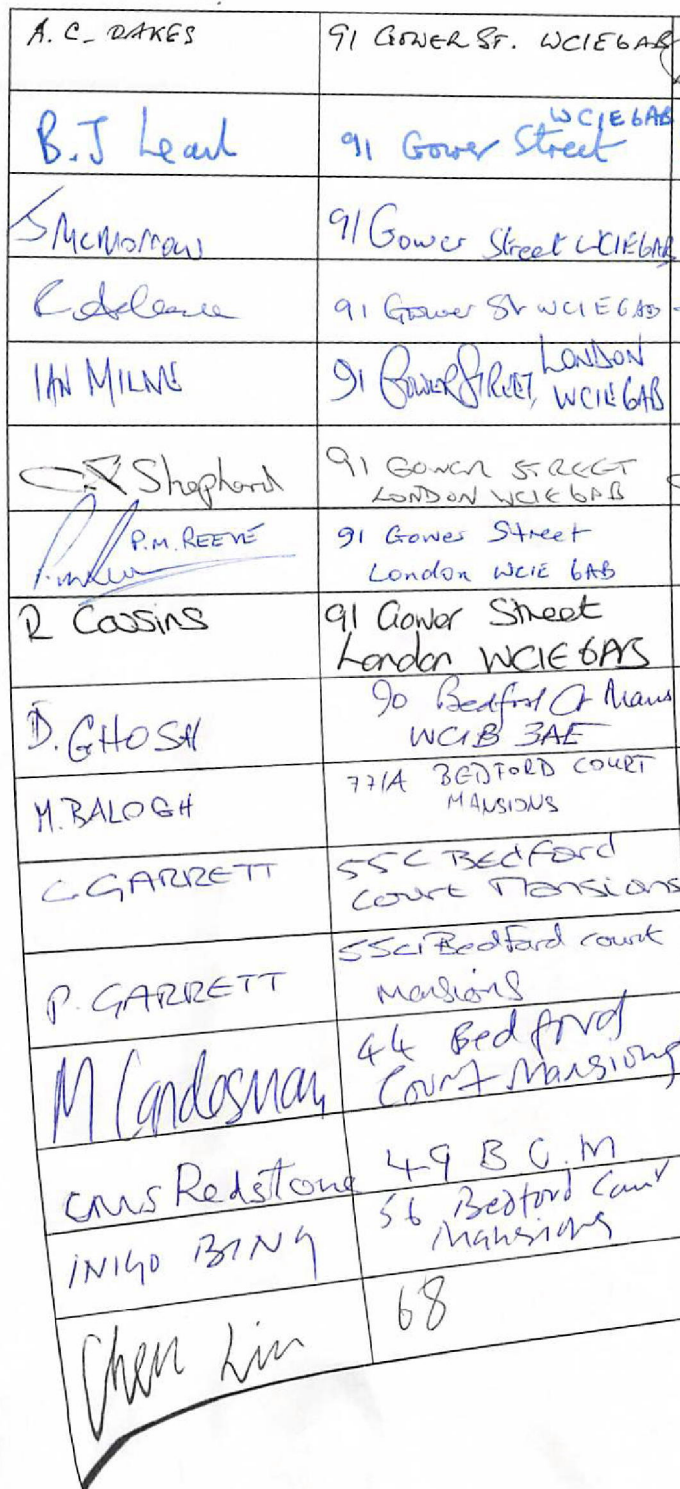 A. C. OAKES 91 GOWER ST. WC1E 6AB
WC1E 6AB
B.J 91 Gower Street
S McMorrow 91 Gower Street WC1E 6AB
91 Gower St WC1E 6AB
IAN MILNE 91 GOWER STREET, LONDON
WC1E 6AB
Shephard 91 GOWER STREET
LONDON WC1E 6AB
P.M. REEVE 91 Gower Street
London WC1E 6AB
R Cossins 91 Gower Street
London WC1E 6AB
D. GHOSH 90 Bedford Ct Mans
WC1B 3AE
M. BALOGH 77/A BEDFORD COURT
MANSIONS
C GARRETT 55C BEDFord
Court Mansions
P. GARRETT 55C Bedford court
Mansions
M 44 Bedford
Court Mansions
Redstone 49 B C. M
INIGO BING 56 Bedford Court
Mansions
Chen Lin 68